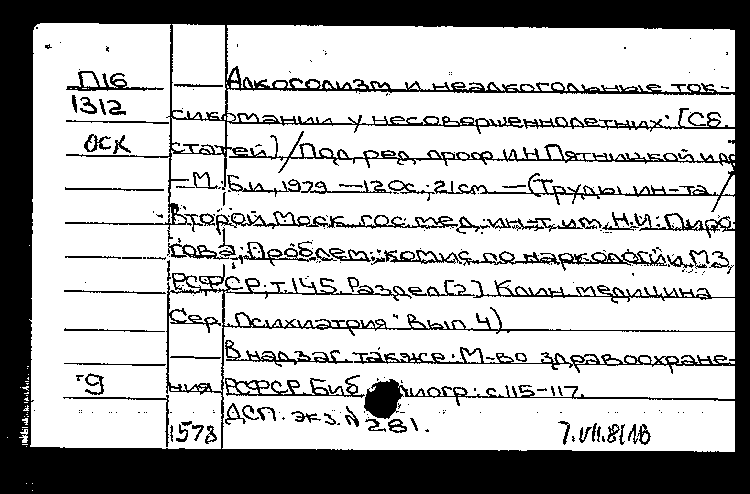 П16 Алкоголизм и неалкогольные ток-
1312 сикомании у несовершеннолетних: [Сб.
ОСК статей] / Под ред. проф. И.Н. Пятницкой и др.
— М.: Б.и., 1979 — 120 с.; 21 см. — (Труды ин-та /
Второй Моск. гос. мед. ин-т им. Н.И. Пиро-
гова; Проблем. комис. по наркологии МЗ
РСФСР, т. 145. Раздел [2] Клин. медицина
Сер. Психиатрия. Вып. 4).
В надзаг. также: М-во здравоохране-
9 ния РСФСР. Библиогр.: с. 115-117.
ДСП. экз. № 281.
1578 7.VII.81